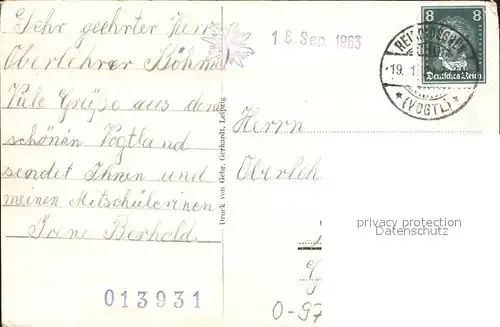 Sehr geehrter Herr
Oberlehrer Böhme
Viele Grüße aus dem
schönen Vogtland
sendet Ihnen und
meinen Mitschülerinen
Irene Berhold.
013931
Druck von Gebr. Gerhardt, Leipzig
16. Sep. 1963
8 8
Deutsches Reich
19.1
★ (VOGTL) ★
Herrn
Oberleh
privacy protection
Datenschutz
0-97